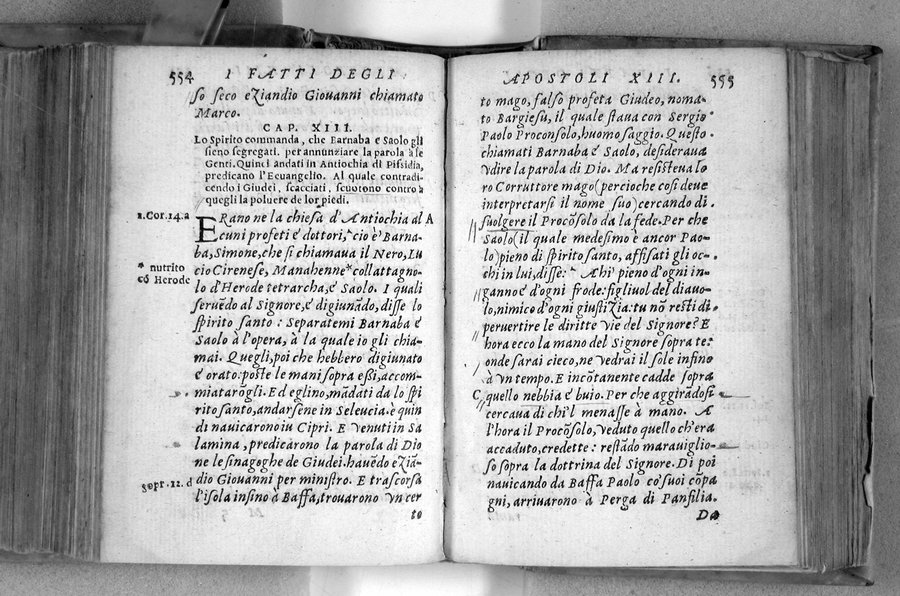 554 I FATTI DEGLI
so seco eziandio Giovanni chiamato
Marco.
CAP. XIII.
Lo Spirito commanda, che Barnaba e Saolo gli
sieno segregati. per annunziare la parola à le
Genti. Quinci andati in Antiochia di Pissidia,
predicano l'Ecuangelio. Al quale contradi-
cendo i Giudei, scacciati, scuotono contro a
quegli la poluere de lor piedi.
1. Cor. 14. a
ERano ne la chiesa d'Antiochia al A
cuni profeti é dottori, cio é Barna-
ba, Simone, che si chiamaua il Nero, Lu
cio Cirenese, Manahenne * collattagno-
* nutrito
cō Herode
lo d'Herode tetrarcha, é Saolo. I quali
seruēdo al Signore, é digiunādo, disse lo
spirito santo : Separatemi Barnaba é
Saolo à l'opera, à la quale io gli chia-
mai. Quegli, poi che hebbero digiunato
é orato: poste le mani sopra essi, accom-
miatarōgli. Ed eglino, mādati da lo spi
rito santo, andarsene in Seleucia. é quin
di nauicaron iu Cipri. E venuti in Sa
lamina, predicarono la parola di Dio
ne le sinagoghe de Giudei. hauēdo eziā-
dio Giouanni per ministro. E trascorsa
sopr. 12. d
l'isola insino à Baffa, trouarono vn cer
to
APOSTOLI XIII. 555
to mago, falso profeta Giudeo, noma-
to Bargiesù, il quale staua con Sergio
Paolo Proconsolo, huomo saggio. Questo
chiamati Barnaba é Saolo, desideraua
vdire la parola di Dio. Ma resisteua lo
ro Corruttore mago (percioche cosi deue
interpretarsi il nome suo) cercando di
suolgere il Procōsolo da la fede. Per che
Saolo (il quale medesimo è ancor Pao-
lo) pieno di spirito santo, affisati gli oc-
chi in lui, disse: Ahi pieno d'ogni in-
ganno é d'ogni frode: figliuol del diauo-
lo, nimico d'ogni giustizia: tu nō resti di
peruertire le diritte vie del Signore? E
hora ecco la mano del Signore sopra te:
onde sarai cieco, ne vedrai il sole infino
à vn tempo. E incōtanente cadde sopra
C quello nebbia é buio. Per che aggirādosi
cercaua di chi'l menasse à mano. A
l'hora il Procōsolo, veduto quello ch'era
accaduto, credette : restādo marauiglio-
so sopra la dottrina del Signore. Di poi
nauicando da Baffa Paolo co' suoi cōpa
gni, arriuarono à Perga di Panfilia.
Da